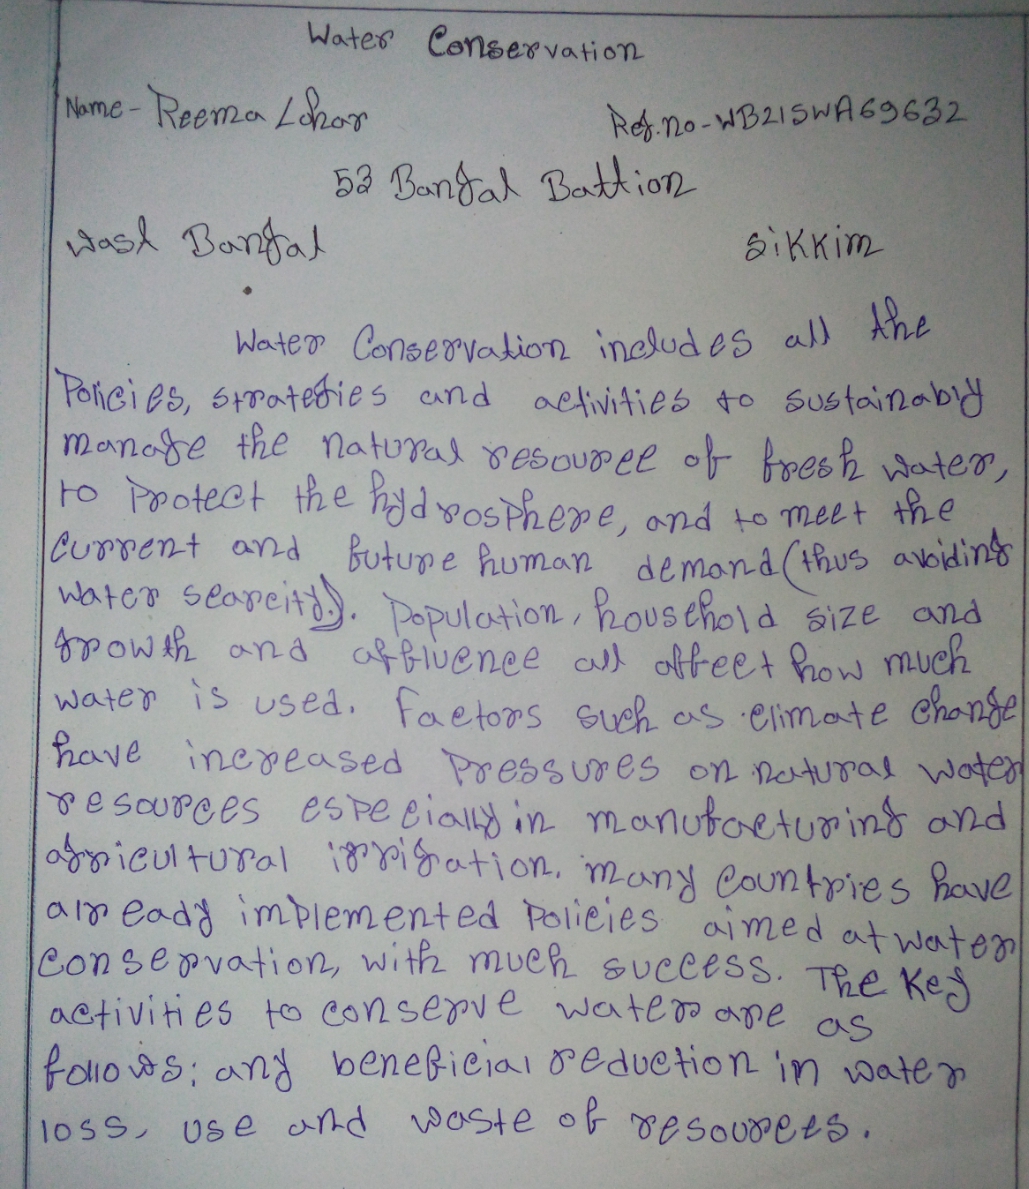 Water Conservation
Name - Reema Lohar Reg.no - WB21SWA69632
53 Bangal Battion
Wast Bangal Sikkim
Water Conservation includes all the
Policies, strategies and activities to sustainably
manage the natural resource of fresh water,
to Protect the hydrosphere, and to meet the
Current and future human demand (thus avoiding
water scarcity). Population, household size and
growth and affluence all affect how much
water is used. Factors such as climate change
have increased Pressures on natural water
resources especially in manufacturing and
agricultural irrigation. many Countries have
already implemented Policies aimed at water
Conservation, with much success. The Key
activities to conserve water are as
follows: any beneficial reduction in water
loss, use and waste of resources.